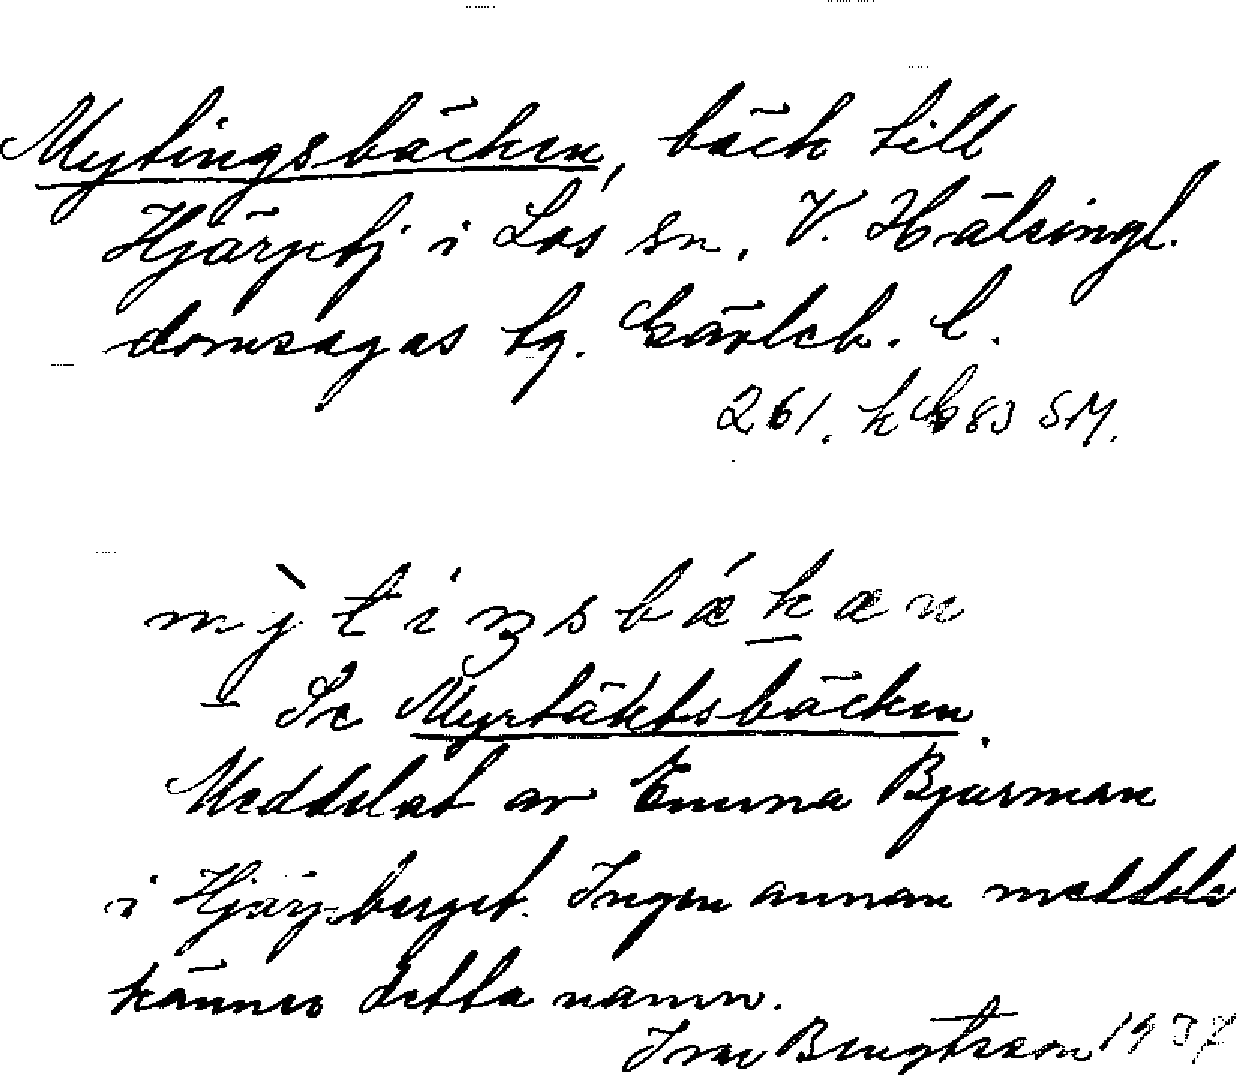 Mytingsbäcken, bäck till
Hjärptj i Los sn, V. Hälsingl.
domsagas tg. Gävleb. l.
261. k SM.
mỳtiŋsbækæn
- Se Myrtäktsbäcken.
Meddelat av Emma Bjurman
i Hjärpberget. Ingen annan meddele
känner detta namn.
Ivar Bengtsson 1937